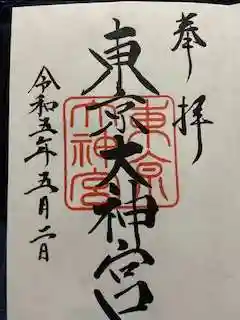 奉拝
東京大神宮
東京
大神宮
令和五年五月二日